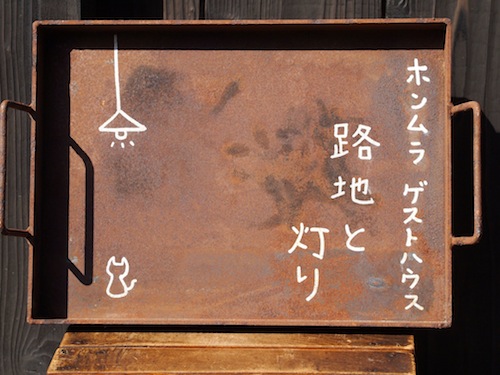 ホンムラ ゲストハウス
路地と
灯り